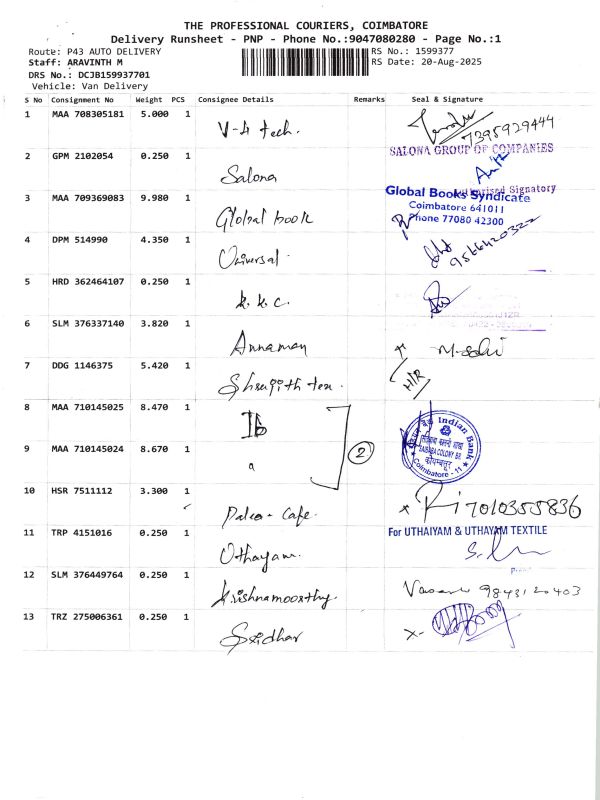 THE PROFESSIONAL COURIERS, COIMBATORE
Delivery Runsheet - PNP - Phone No.:9047080280 - Page No.:1
Route: P43 AUTO DELIVERY
RS No.: 1599377
Staff: ARAVINTH M
RS Date: 20-Aug-2025
DRS No.: DCJB159937701
Vehicle: Van Delivery
S No Consignment No Weight PCS Consignee Details Remarks Seal & Signature
1 MAA 708305181 5.000 1 V-4 tech. 7395929444
2 GPM 2102054 0.250 1 Salona SALONA GROUP OF COMPANIES
Authorised Signatory
3 MAA 709369083 9.980 1 Global book Global Books Syndicate
Coimbatore 641011
Phone 77080 42300
4 DPM 514990 4.350 1 Universal
5 HRD 362464107 0.250 1 k.k.c.
6 SLM 376337140 3.820 1 Annamay
7 DDG 1146375 5.420 1 H/R
8 MAA 710145025 8.470 1 Ib Indian Bank
9 MAA 710145024 8.670 1 " 2 SAIBABA COLONY BR
Coimbatore - 11
10 HSR 7511112 3.300 1 Cafe. 7010355836
11 TRP 4151016 0.250 1 Uthayam. For UTHAIYAM & UTHAYAM TEXTILE
12 SLM 376449764 0.250 1 Krishnamoorthy. 9843120403
13 TRZ 275006361 0.250 1 Sridhar